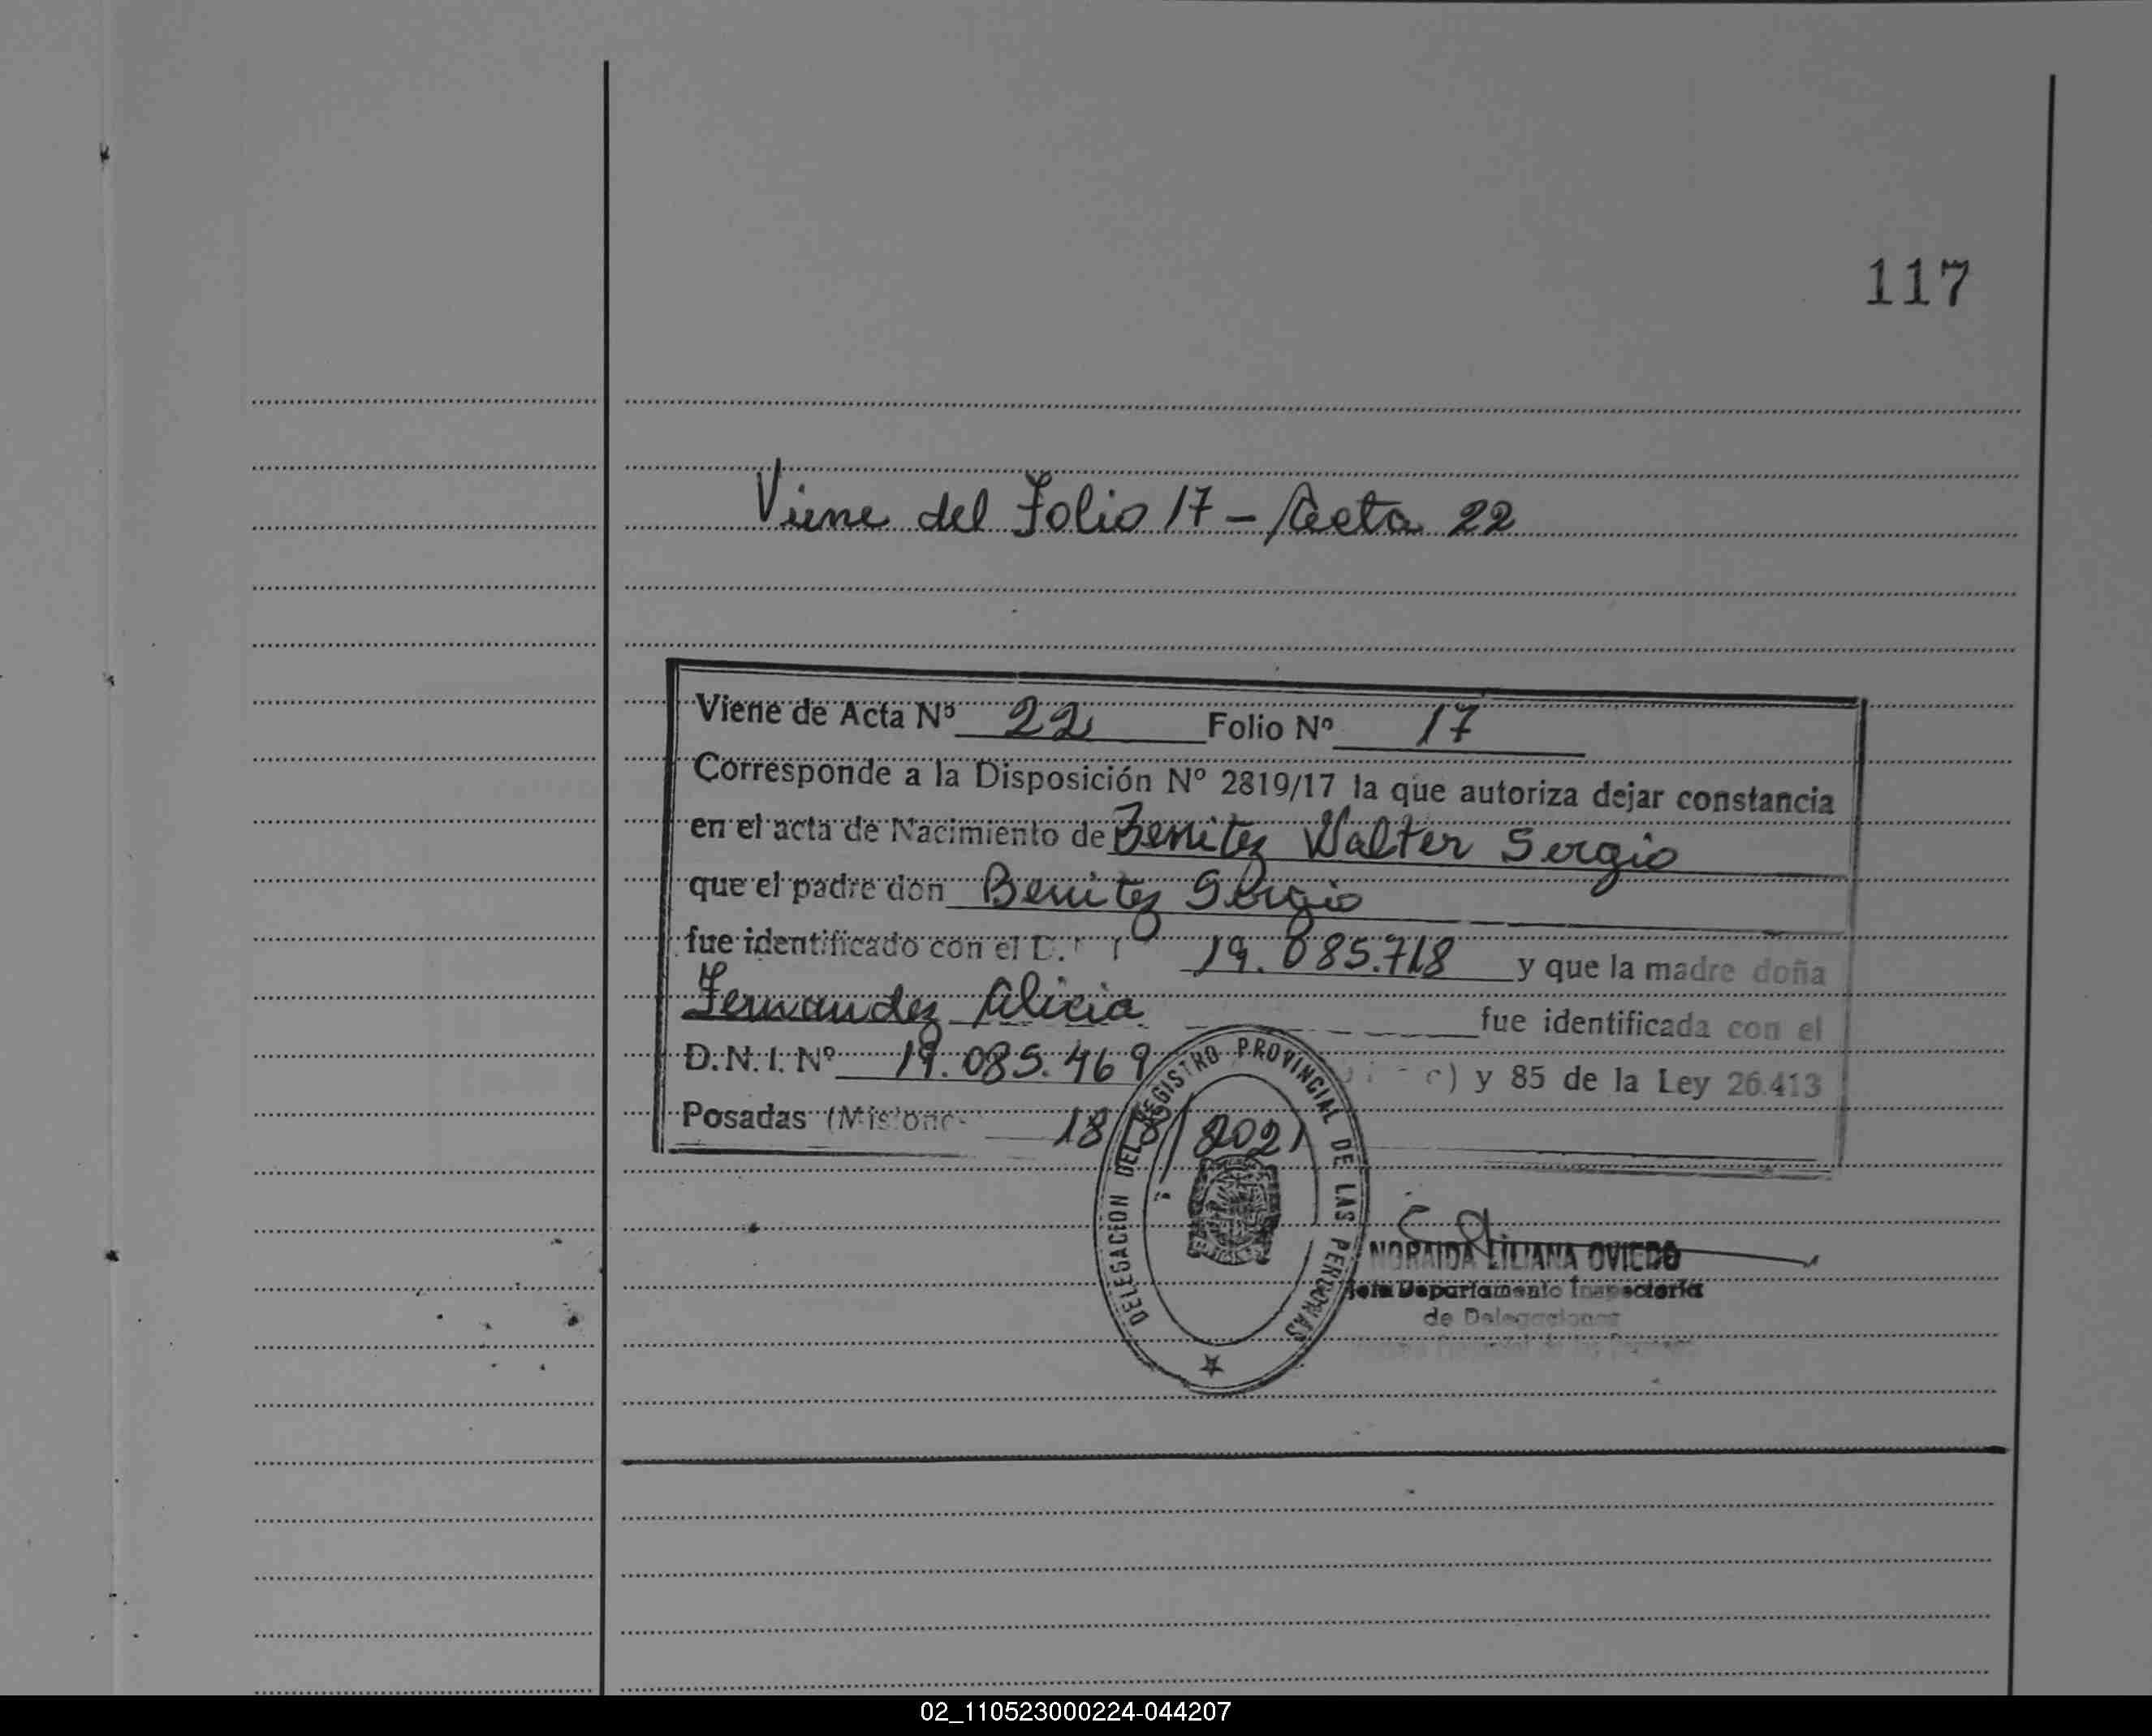 117
Viene del Folio 17 - Acta 22
Viene de Acta Nº 22 Folio Nº 17
Corresponde a la Disposición Nº 2819/17 la que autoriza dejar constancia
en el acta de Nacimiento de Benitez Walter Sergio
que el padre don Benitez Sergio
fue identificado con el 19.085.718 y que la madre doña
Fernandez Alicia fue identificada con el
D.N.I. Nº 19.085.469 c) y 85 de la Ley 26.413
Posadas 18 2021
DELEGACION DEL REGISTRO PROVINCIAL DE LAS PERSONAS
NORAIDA LILIANA OVIEDO
Jefe Departamento Inspectoría
de Delegaciones
02_110523000224-044207